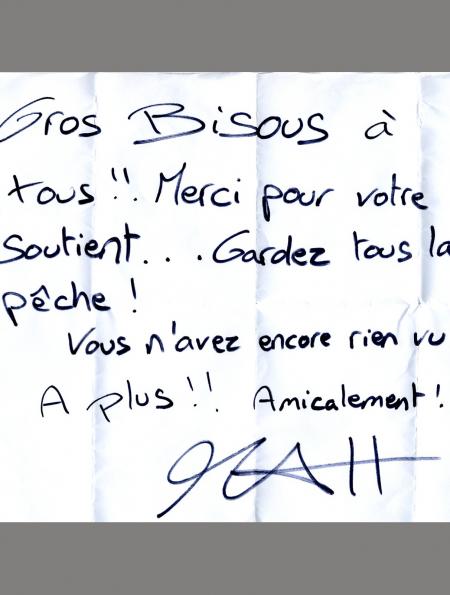 Gros Bisous à
tous!! Merci pour votre
Soutient... Gardez tous la
pêche !
Vous n'avez encore rien vu
A plus!! Amicalement!